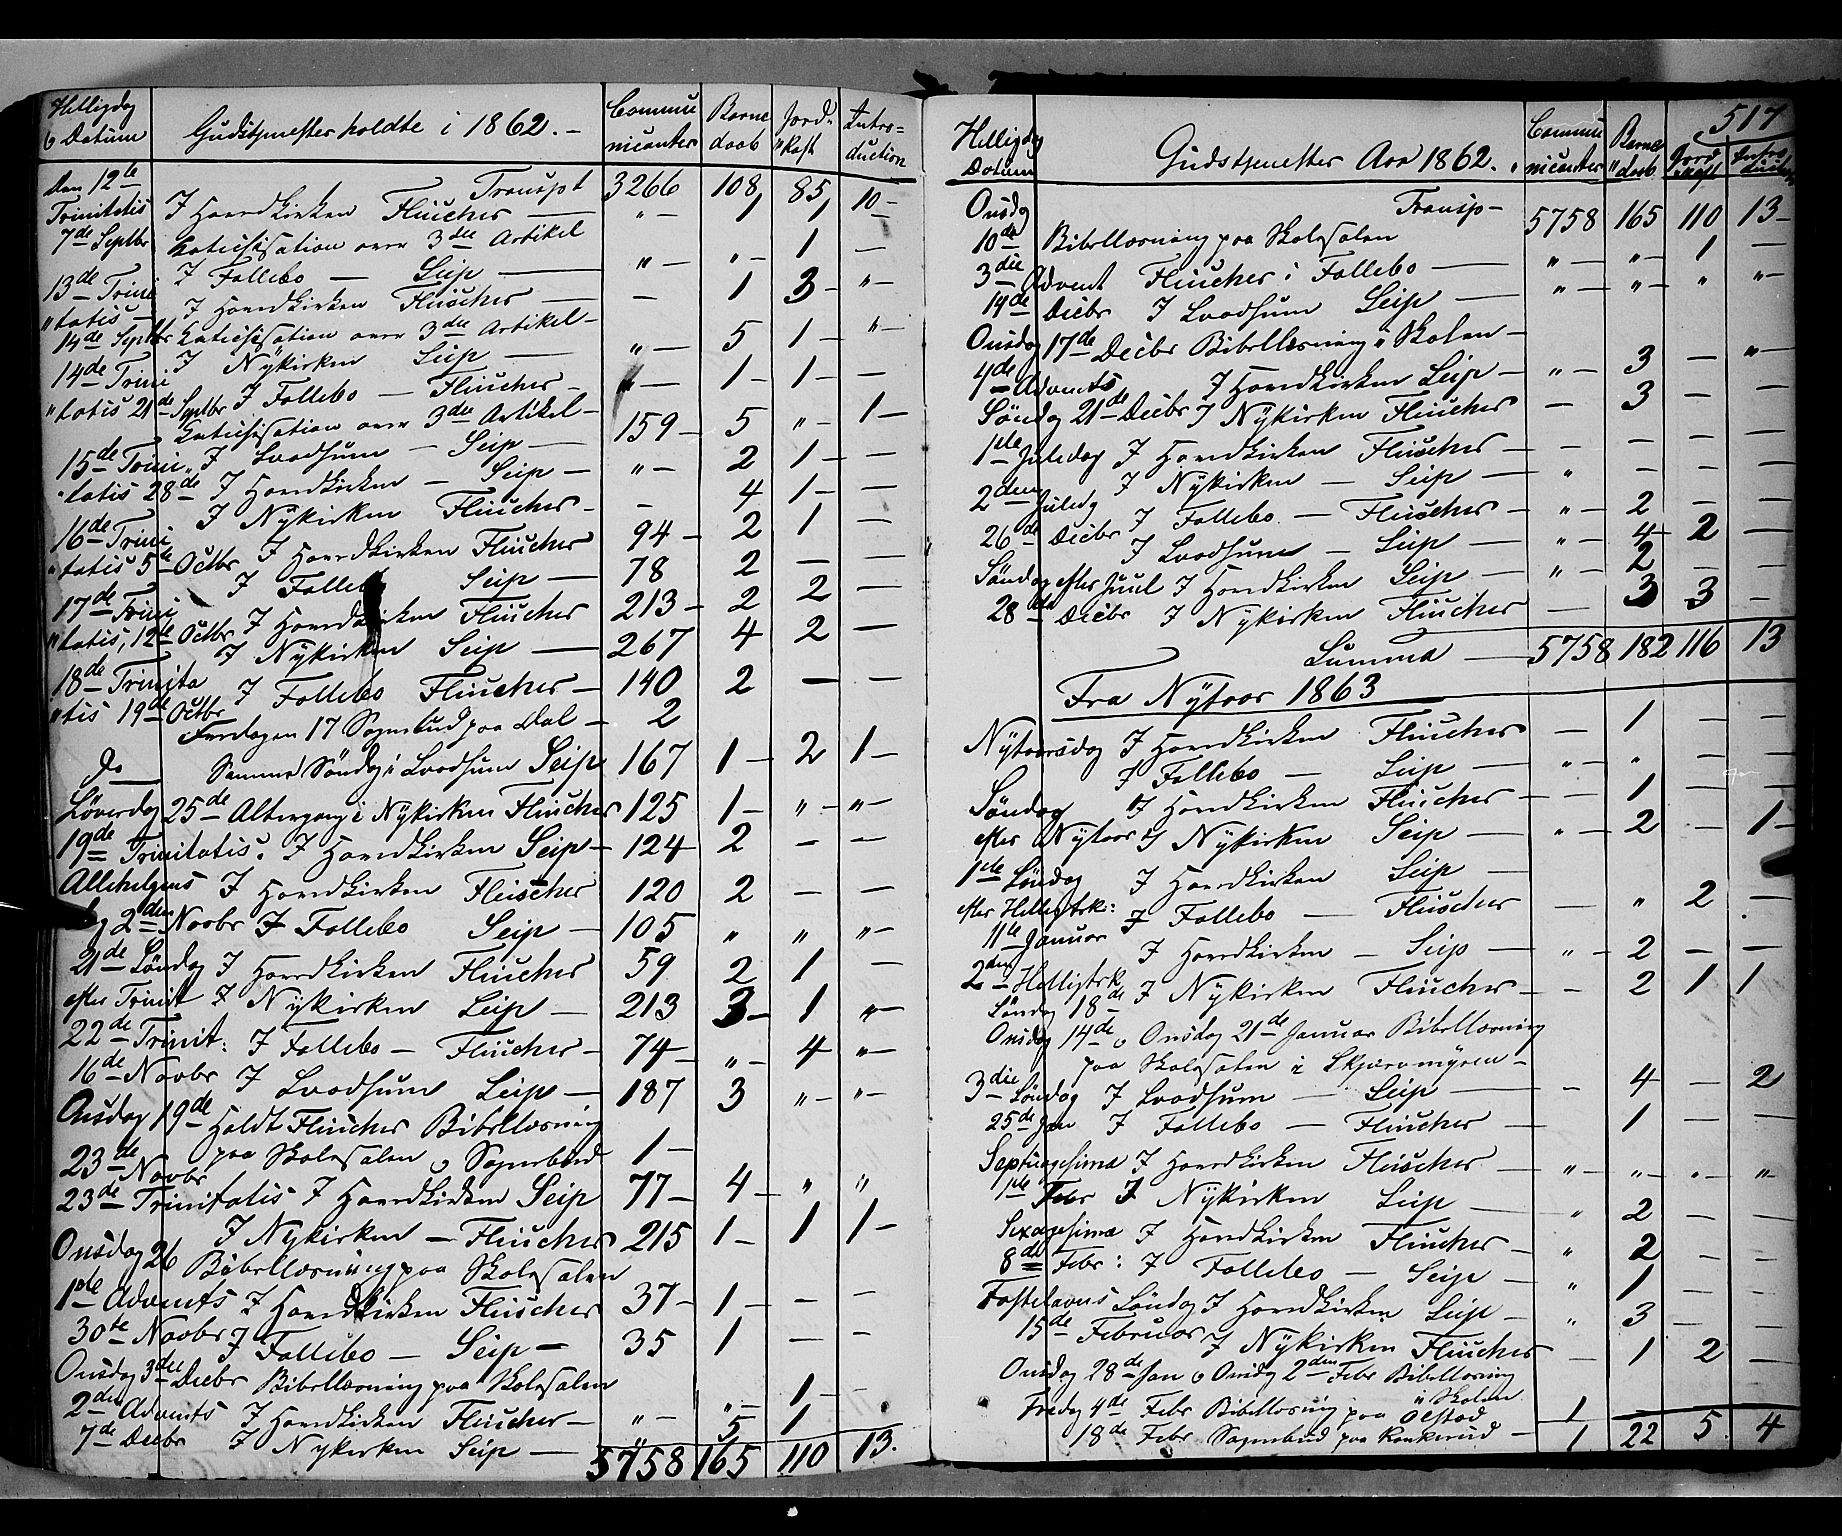 Helligdag
o Datum
Gudstjenester holdte i 1862. –
Commu
nicanter
Barne
daab
Jord-
"kast
Intro=
duction
Den 12te Transpt 3266 108, 85, 10 –
Trinitatis I Hovedkirken Fleischer — " –
7de Septbr Katechisation over 3die Artikel
I Follebo — Seip — " – " – 1 —
13de Trini I Hovedkirken Fleischer — – 1 3 – " –
"tatis – Katechisation over 3die Artikel –
14de Septbr I Nykirken Seip — " – 5 1 – " –
14de Trini I Follebo — Fleischer – " – 1 – 1 – —
"tatis 21de Septbr Katechisation over 3die Artikel – 159 – 5 " – 1 –
15de Trini „ I Lvodsum — Seip — " – 2 1 – —
"tatis 28de I Hovedkirken — Seip — – 4 1 – —
I Nykirken Fleischer –
16de Trini I Hovedkirken Fleischer 94 – 2 1 —
"tatis 5te Octbr I Follebo Seip — 78 2 — —
17de Trini I Hovedkirken Fleischer 213 – 2 2 —
"tatis, 12te Octbr I Nykirken Seip — 267 4 2 —
18de Trinita I Follebo Fleischer – 140 2 — —
"tis 19de Octbr Fredagen 17 Sognebud paa Dal – 2
Do Samme Søndag i Lvodsum Seip 167 1 – 2 1 –
Løverdag 25de Altergang i Nykirken Fleischer 125 1 – " – " –
19de Trinitatis. I Hovedkirken Seip – 124 2 – –
Allehelgens I Hovedkirken Fleischer 120 2 – –
Dg 2den Novbr I Follebo Seip — 105 " " " –
21de Søndag I Hovedkirken Fleischer 59 2 1 –
efter Trinit I Nykirken Seip — 213 3 – 1 " –
22de Trinit: I Follebo — Fleischer – 74 – " – 4 " –
16de Novbr I Lvodsum Seip — 187 3 " – " –
Onsdag 19de Holdt Fleischer Bibellæsning
paa Skolesalen o Sognebud 1 –
23de Novbr
23de Trinitatis I Hovedkirken Seip 77 – 4 – " "
I Nykirken — Fleischer 215 1 – 1 1 –
Onsdag 26 Bibellæsning paa Skolesalen
1ste Advents I Hovedkirken Fleischer 37 – 1 – – –
30te Novbr I Follebo — Seip — 35 1 — –
Onsdag 3die Decbr Bibellæsning paa Skolesalen
2den Advents I Hovedkirken Fleischer – " – " – 1 – –
7de Decbr I Nykirken Seip — " 5 1
5758 165 110 13.
517
Helligdag
Datum
Gudstjenester Aar 1862. "
Commu
nicanter
Barne
"daab
Jord
kast
Intro
duction
Onsdg Transp – 5758 165 110 13 –
10de Bibellæsning paa Skolesalen
3die Advent Fleischer i Follebo — " – " – 1 —
14de Decbr I Lvodsum Seip — " – " – " " –
Onsdag 17de Decbr Bibellæsning i Skolen –
4de Advents I Hovedkirken Seip – " – 3 — " –
Søndag 21de Decbr I Nykirken Fleischer — 3 —
1ste Juledag I Hovedkirken Fleischer — — — — —
2den Juledg I Nykirken — Seip — " — — —
26de Decbr I Follebo — Fleischer — " – 2 — —
I Lvodsum — Seip — " – 4 – 2 —
Søndag efter Juul I Hovedkirken Seip — " – 2 — –
28de Decbr I Nykirken Fleischer — 3 3 –
Summa — 5758 182 116 13
Fra Nytaar 1863
Nytaarsdag I Hovedkirken Fleischer — 1 — —
I Follebo — Seip — " – " — —
Søndag I Hovedkirken Fleischer — — 1 — —
efter Nytaar I Nykirken Seip — " – 2 — 1 –
1ste Søndag I Hovedkirken Seip —
efter Helligtrk: I Follebo — Fleischer — " 2 —
11te Januar I Hovedkirken — Seip — " – 2 – —
2den Helligtrk I Nykirken Fleischer – – 2 1 1
Søndag 18de
Onsdag 14de o Onsdag 21de Januar Bibellæsning
paa Skolesalen i Skjæremyren –
3die Søndag I Lvodsum — Seip — – 4 — 2
25de Jan I Follebo — Fleischer — 1 —
Septuagesima I Hovedkirken Fleischer — " – " – " – "
1ste Febr I Nykirken Seip — " 2 — —
Sexagesima I Hovedkirken Fleischer – " 2 — —
8de Febr: I Follebo — Seip — " 1 — —
Fastelavns Søndag I Hovedkirken Seip – " 3 – –
15de Februar I Nykirken Fleischer — 1 2 —
Onsdag 28de Jan o Onsdg 2den Febr Bibellæsning
i Skolen
Fredag 4de Febr Bibellæsning paa Ølstad 1
18de Febr Sognebud paa Rankerud – 1 22 5 4